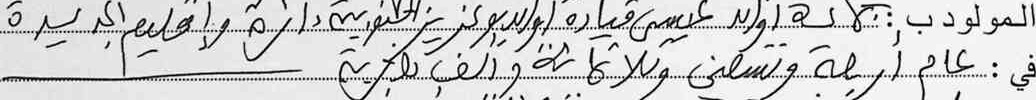 المولود ب: ثلاثة اولاد عيسى قيادة اولاد بوعزيز الجنوبية دائرة واقليم الجديدة
في: عام أربعة وتسعين وثلاثمائة وألف هجرية